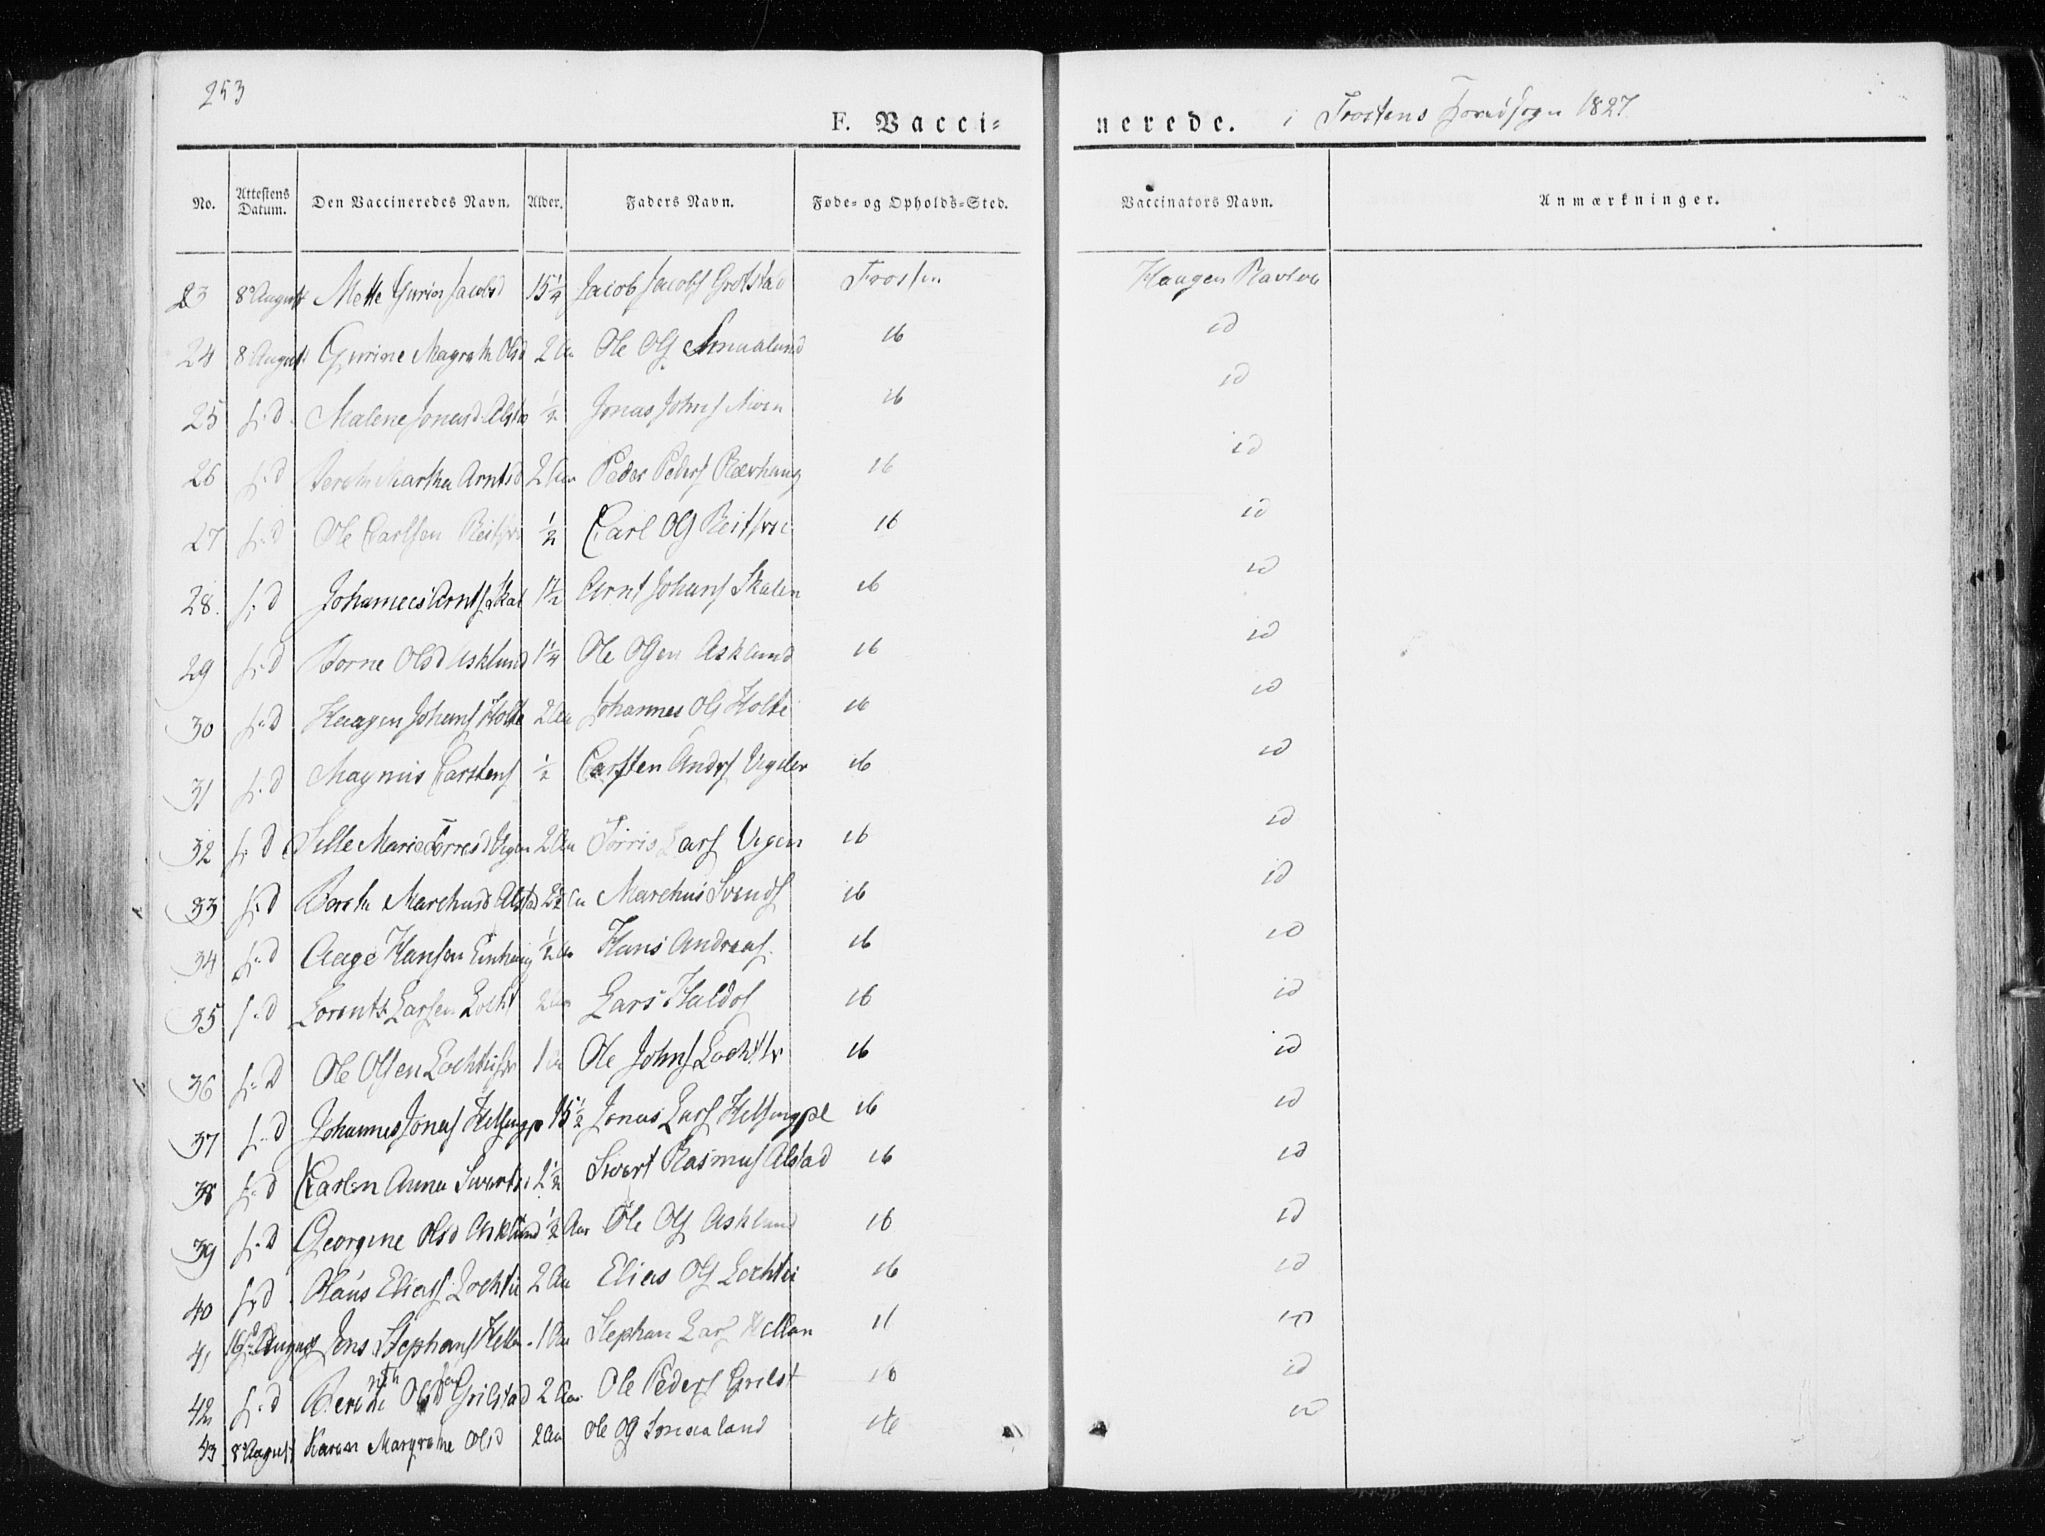 253
F. Vacci- nerede. i Frostens Hovedsogn 1827
No. Attestens Datum. Den Vaccineredes Navn. Alder. Faders Navn. Føde- og Opholds-Sted. Vaccinators Navn. Anmærkninger.
23 8 August Mette Jacobsd 15 1/4 Jacob Jacobs Frosten Haagen
24 8 August Gurine Magreth Olsd 2 Aa Ole Ols Smaalund ib id
25 f: d Malene Jonasd Alsta 1/2 Jonas Johns ib id
26 f: d Bereth Martha Arntsd 2 Aar Peder Peders Rævhaug ib id
27 f: d Ole Carlsen 1/2 Carl Ols ib id
28. f: d Johannes Arnts Skal 1 1/2 Arnt Johans Skalen ib id
29 f: d Olsd Asklund 1 1/4 Ole Olsen Asklund ib id
30 f: d Haagen Johans Holte 2 Aa Johannes Ols Holte ib id
31 f: d Magnus Carstens 1/2 Carsten Anders ib id
32 f: d Sille Marie Torresd Vigen 2 Aa Torris Lars Vigen ib id
33 f: d Bereth Marchusd Alstad 2 1/2 Aa Marchus Svends ib id
34 f: d Aage Hansen 1/2 Aa Hans Andreas ib id
35 f: d Lorents Larsen Locht 2 Aa Lars Haldos ib id
36 f: d Ole Olsen 1 Aa Ole Johns ib id
37 f: d Johannes Jonas 15 1/2 Jonas Lars ib id
38 f: d Carlen Anna 2 1/2 Sivert Rasmus Alstad ib id
39 f: d Georgine Olsd Asklund 1/2 Aar Ole Ols Asklund ib id
40 f: d Claus Elias Lochte 2 Aa Elias Ols Lochte ib id
41 August Jens Stephans 1 Aa Stephan Lars Hellan ib id
42 f: d Olsd Grilstad 2 Aa Ole Peders Grilst ib id
43 8 August Karen Margrethe Olsd 2 Aa Ole Ols Smaaland ib id